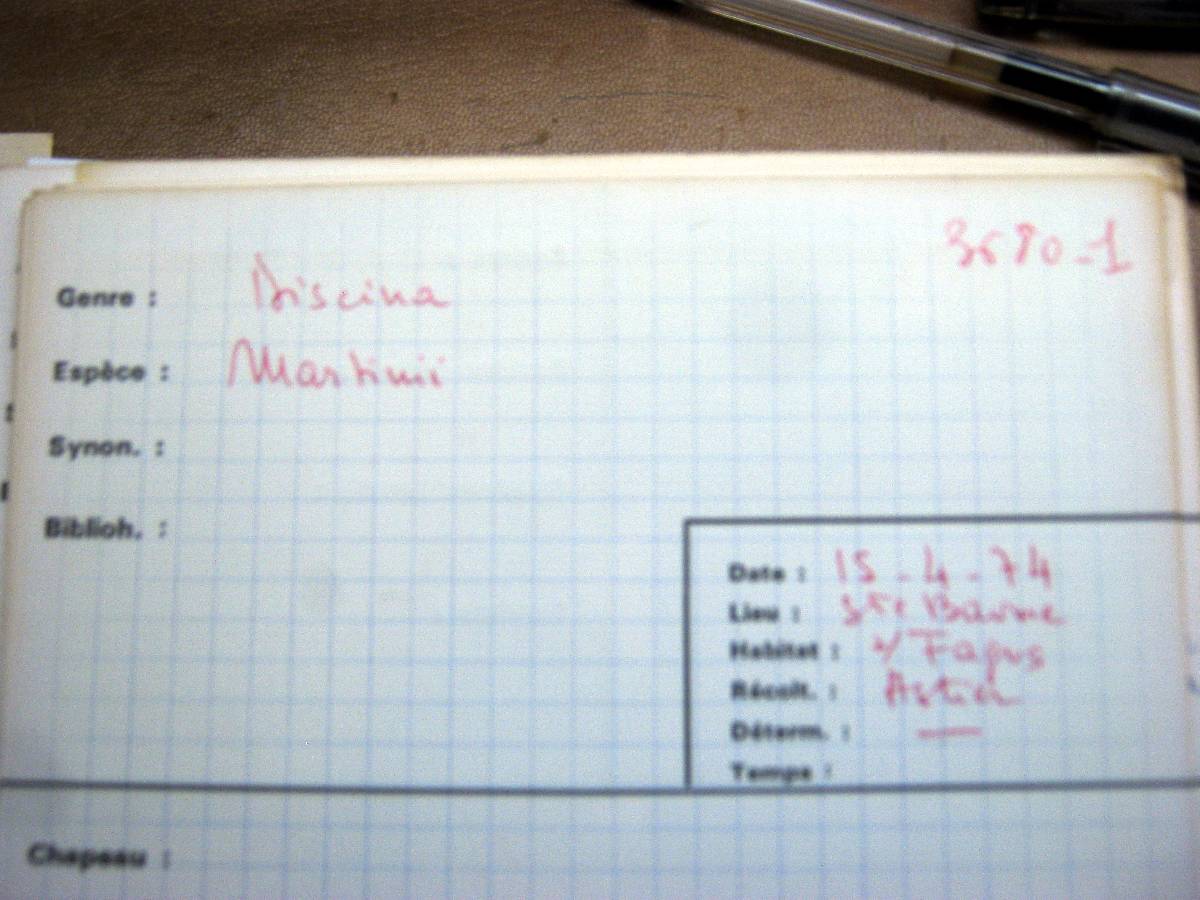 3680-1
Genre : Discina
Espèce : Martinii
Synon. :
Biblioh. :
Date : 15-4-74
Lieu : Ste Baume
Habitat : s/ Fagus
Récolt. : Astier
Déterm. : —
Temps :
Chapeau :